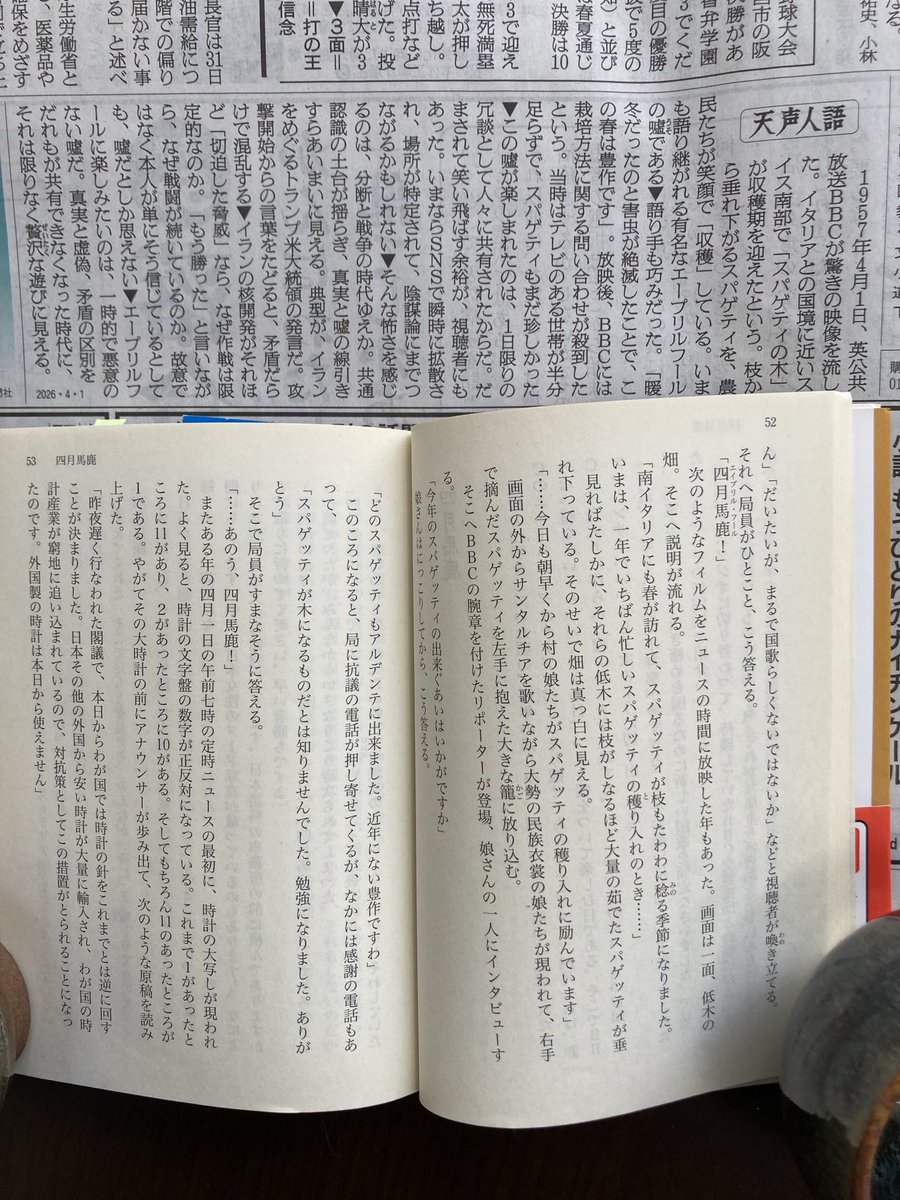 天声人語
1957年4月1日、英公共
放送BBCが驚きの映像を流し
た。イタリアとの国境に近いス
イス南部で「スパゲティの木」
が収穫期を迎えたという。枝か
ら垂れ下がるスパゲティを、農
民たちが笑顔で「収穫」している。いま
も語り継がれる有名なエープリルフール
の嘘である▼語り手も巧みだった。「暖
冬だったのと害虫が絶滅したことで、こ
の春は豊作です」。放映後、BBCには
栽培方法に関する問い合わせが殺到した
という。当時はテレビのある世帯が半分
足らずで、スパゲティもまだ珍しかった
▼この嘘が楽しまれたのは、1日限りの
冗談として人々に共有されたからだ。だ
まされて笑い飛ばす余裕が、視聴者にも
あった。いまならSNSで瞬時に拡散さ
れ、場所が特定されて、陰謀論にまでつ
ながるかもしれない▼そんな怖さを感じ
るのは、分断と戦争の時代ゆえか。共通
認識の土台が揺らぎ、真実と嘘の線引き
すらあいまいに見える。典型が、イラン
をめぐるトランプ米大統領の発言だ。攻
撃開始からの言葉をたどると、矛盾だら
けで混乱する▼イランの核開発がそれほ
ど「切迫した脅威」なら、なぜ作戦は限
定的なのか。「もう勝った」と言いなが
ら、なぜ戦闘が続いているのか。故意で
はなく本人が単にそう信じているとして
も、嘘だとしか思えない▼エープリルフ
ールに楽しみたいのは、一時的で悪意の
ない嘘だ。真実と虚偽、矛盾の区別を
だれもが共有できなくなった時代に、
それは限りなく贅沢な遊びに見える。
2026・4・1
52
ん」「だいたいが、まるで国歌らしくないではないか」などと視聴者が喚き立てる。
それへ局員がひとこと、こう答える。
「四月馬鹿！」
次のようなフィルムをニュースの時間に放映した年もあった。画面は一面、低木の
畑。そこへ説明が流れる。
「南イタリアにも春が訪れて、スパゲッティが枝もたわわに稔る季節になりました。
いまは、一年でいちばん忙しいスパゲッティの穫り入れのとき……」
見ればたしかに、それらの低木には枝がしなるほど大量の茹でたスパゲッティが垂
れ下っている。そのせいで畑は真っ白に見える。
「……今日も朝早くから村の娘たちがスパゲッティの穫り入れに励んでいます」
画面の外からサンタルチアを歌いながら大勢の民族衣裳の娘たちが現われて、右手
で摘んだスパゲッティを左手に抱えた大きな籠に放り込む。
そこへBBCの腕章を付けたリポーターが登場、娘さんの一人にインタビューす
る。
「今年のスパゲッティの出来ぐあいはいかがですか」
娘さんはにっこりしてから、こう答える。
53 四月馬鹿
「どのスパゲッティもアルデンテに出来ました。近年にない豊作ですわ」
このころになると、局に抗議の電話が押し寄せてくるが、なかには感謝の電話もあ
って、
「スパゲッティが木になるものだとは知りませんでした。勉強になりました。ありが
とう」
そこで局員がすまなそうに答える。
「……あのう、四月馬鹿！」
またある年の四月一日の午前七時の定時ニュースの最初に、時計の大写しが現われ
た。よく見ると、時計の文字盤の数字が正反対になっている。これまで1があったと
ころに11があり、2があったところに10がある。そしてもちろん11のあったところが
1である。やがてその大時計の前にアナウンサーが歩み出て、次のような原稿を読み
上げた。
「昨夜遅く行なわれた閣議で、本日からわが国では時計の針をこれまでとは逆に回す
ことが決まりました。日本その他の外国から安い時計が大量に輸入され、わが国の時
計産業が窮地に追い込まれているので、対抗策としてこの措置がとられることになっ
たのです。外国製の時計は本日から使えません」